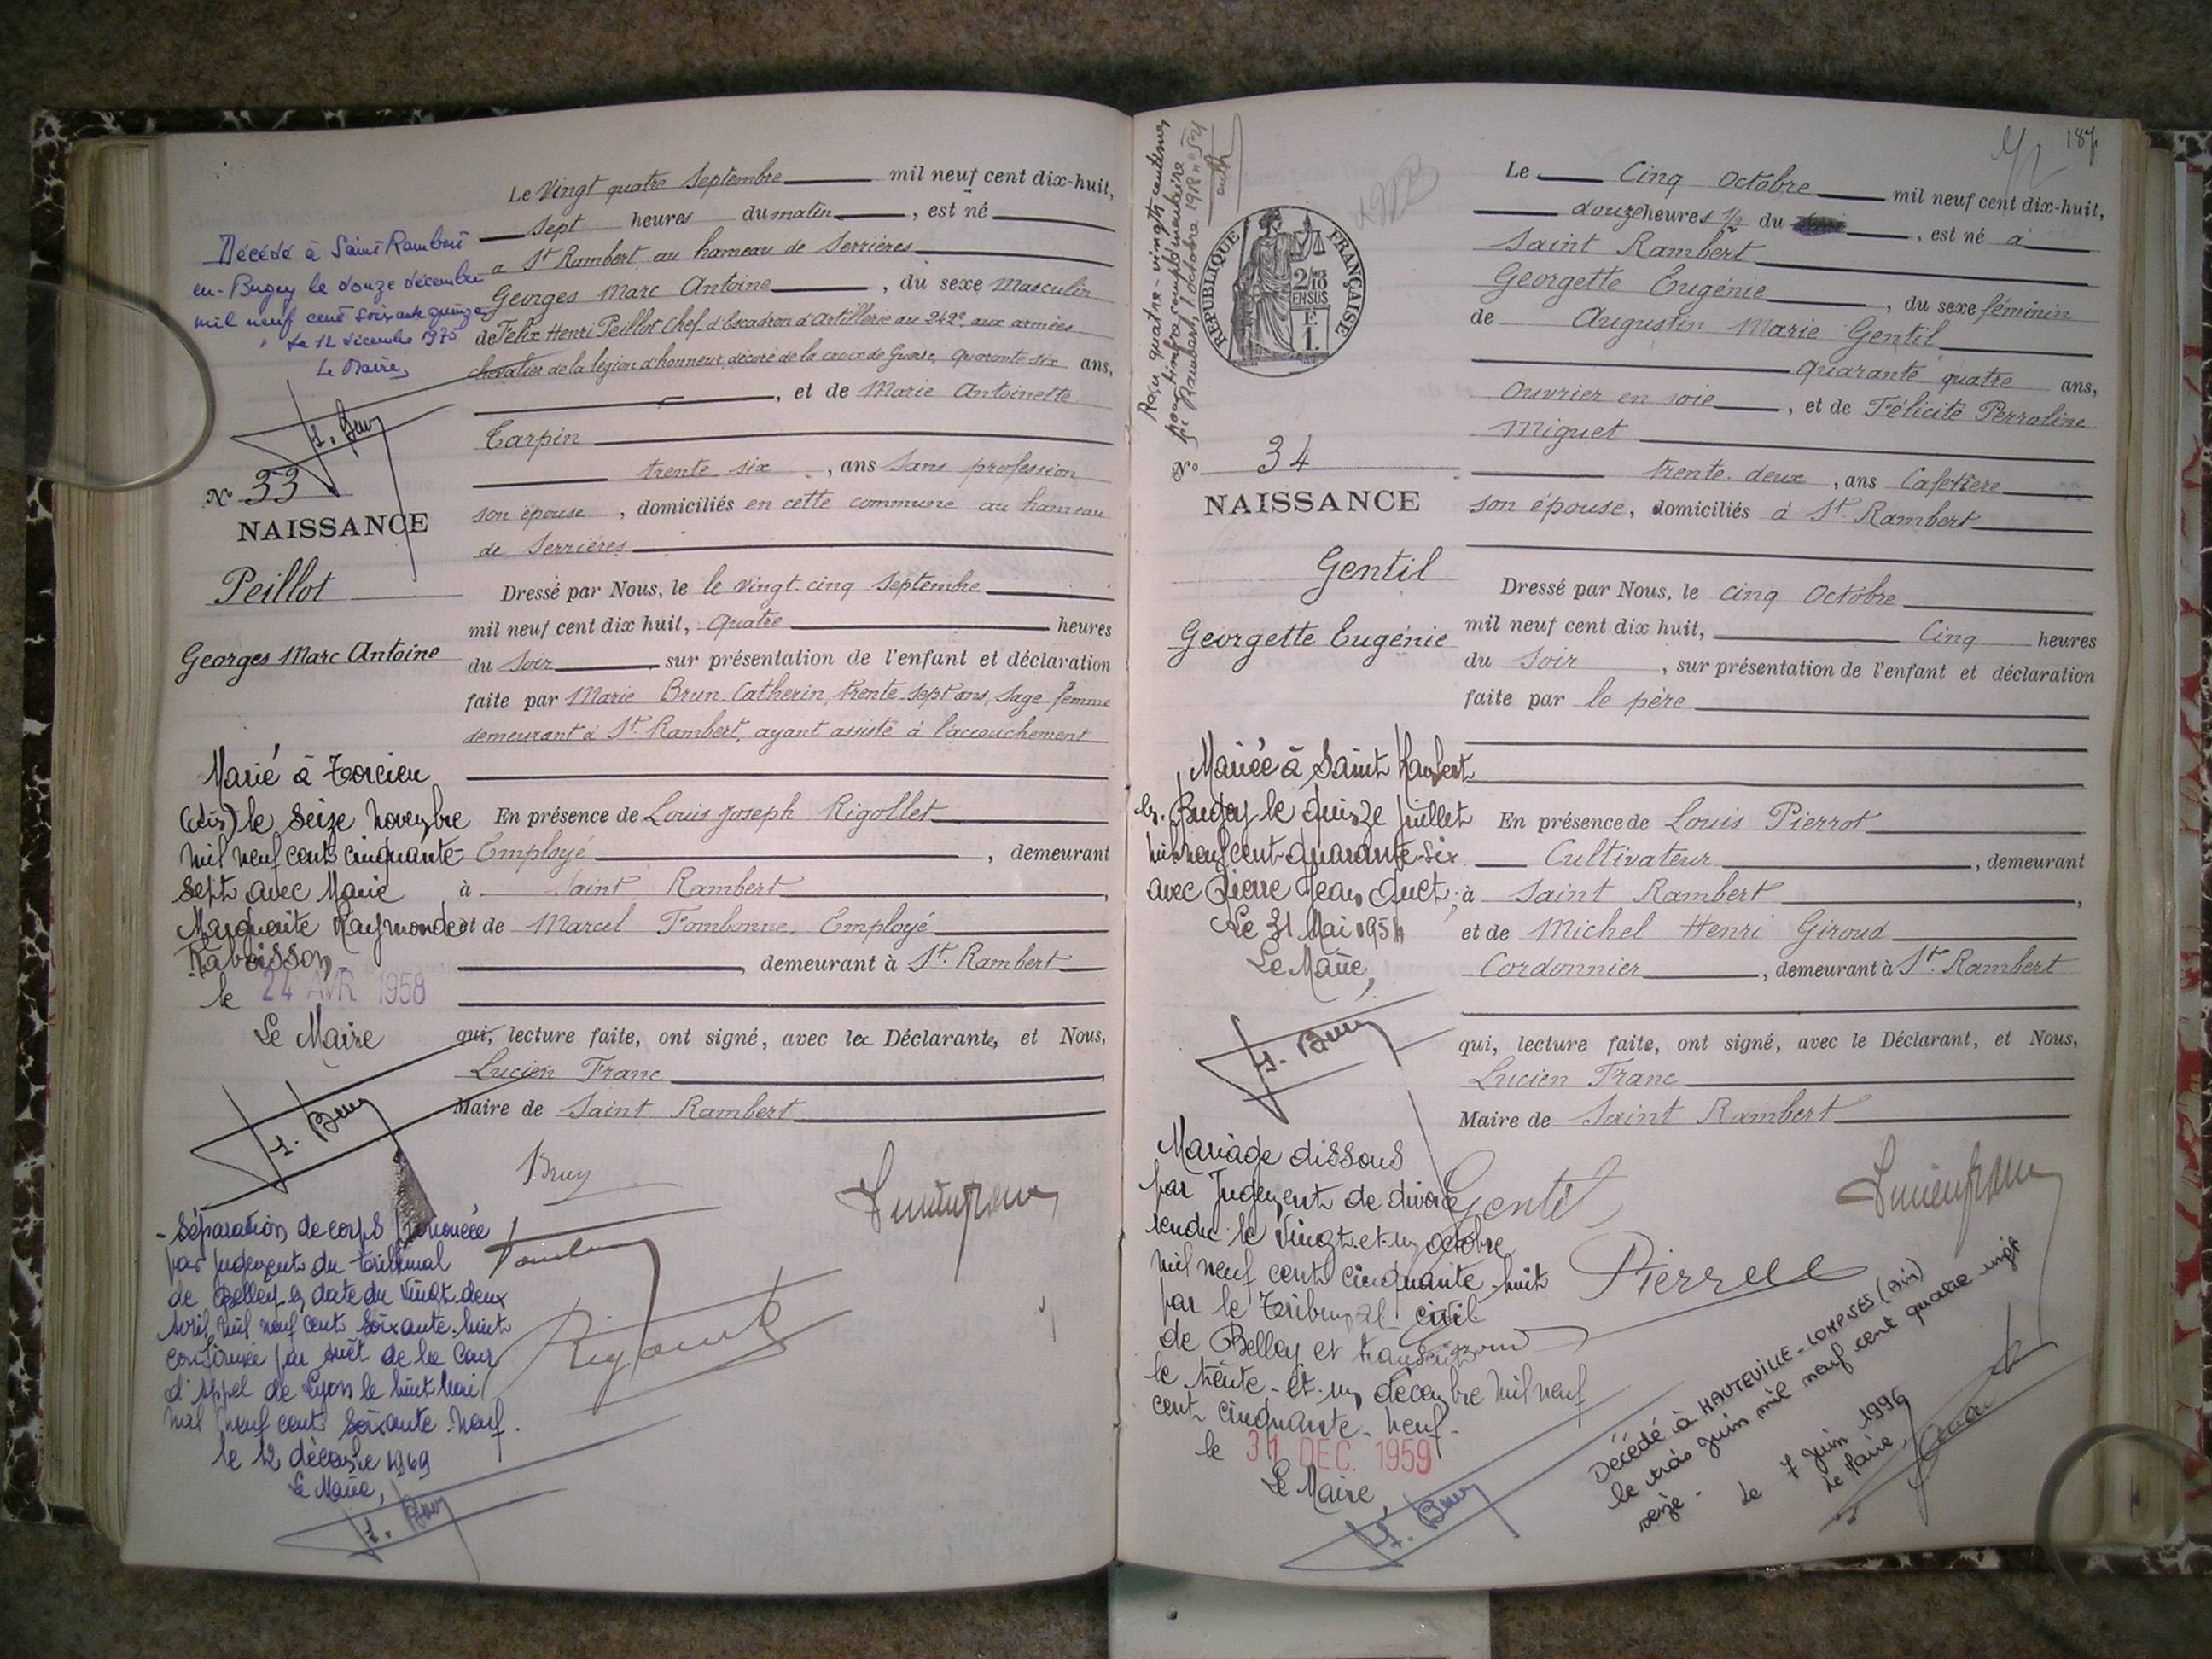 Le Vingt quatre Septembre mil neuf cent dix-huit,
sept heures du matin, est né
a St Rambert au hameau de Serrières
Georges Marc Antoine, du sexe Masculin
de Felix Henri Peillot Chef d'Escadron d'Artillerie au 242e aux armées
chevalier de la légion d'honneur, décoré de la croix de Guerre, quarante six ans,
, et de Marie Antoinette
Tarpin
trente six, ans Sans profession
son épouse, domiciliés en cette commune au hameau
de Serrières
Dressé par Nous, le le vingt-cinq Septembre
mil neuf cent dix huit, quatre heures
du Soir sur présentation de l'enfant et déclaration
faite par Marie Brun-Catherin, trente-sept ans, Sage femme
demeurant à St. Rambert, ayant assisté à l'accouchement
En présence de Louis Joseph Rigollet
Employé, demeurant
à Saint Rambert,
et de Marcel Tombonne. Employé
, demeurant à St. Rambert
qui, lecture faite, ont signé, avec la Déclarante, et Nous,
Lucien Franc
Maire de Saint Rambert
Bruy
Décédé à Saint Rambert
en-Bugey le douze décembre
mil neuf cent soixante quinze
Le 12 décembre 1975
Le Maire,
No 33
NAISSANCE
Peillot
Georges Marc Antoine
Marié à Torcieu
(Ain) le seize Novembre
mil neuf cent cinquante-
sept avec Marie
Marguerite Raymonde
Raboisson
le 24 AVR 1958
Le Maire
- Séparation de corps prononcée
par jugement du tribunal
de Belley en date du vingt deux
avril mil neuf cent soixante-huit
confirmée par arrêt de la Cour
d'Appel de Lyon le huit mai
mil neuf cent soixante neuf.
le 12 décembre 1969
Le Maire,
187
Le Cinq Octobre mil neuf cent dix-huit,
douze heures 1/2 du, est né à
Saint Rambert
Georgette Eugénie, du sexe féminin
de Augustin Marie Gentil
quarante quatre ans,
Ouvrier en soie, et de Félicité Perroline
Miguet
trente-deux, ans Cafetière
son épouse, domiciliés à St. Rambert
Dressé par Nous, le cinq Octobre
mil neuf cent dix huit, Cinq heures
du Soir, sur présentation de l'enfant et déclaration
faite par le père
En présence de Louis Pierrot
Cultivateur, demeurant
à Saint Rambert,
et de Michel Henri Giroud
Cordonnier, demeurant à St. Rambert
qui, lecture faite, ont signé, avec le Déclarant, et Nous,
Lucien Franc
Maire de Saint Rambert
Gentil
RÉPUBLIQUE FRANÇAISE
2/10
EN SUS
F.
1.
Reçu quatre-vingts centimes
pour timbre complémentaire
St Rambert, octobre 1918
No 34
NAISSANCE
Gentil
Georgette Eugénie
Mariée à Saint Rambert
en-Bugey le quinze juillet
mil neuf cent quarante-six
avec Pierre Jean
Le 31 Mai 1954
Le Maire,
Mariage dissous
par jugement de divorce
rendu le vingt-et-un octobre
mil neuf cent cinquante-huit
par le Tribunal civil
de Belley et transcrit
le trente-et-un décembre mil neuf
cent cinquante-neuf-
le 31 DEC. 1959
Le Maire,
Décédé à HAUTEVILLE-LOMPNES (Ain)
le trois juin mil neuf cent quatre vingt
seize-
Le 7 juin 1996
Le Maire,